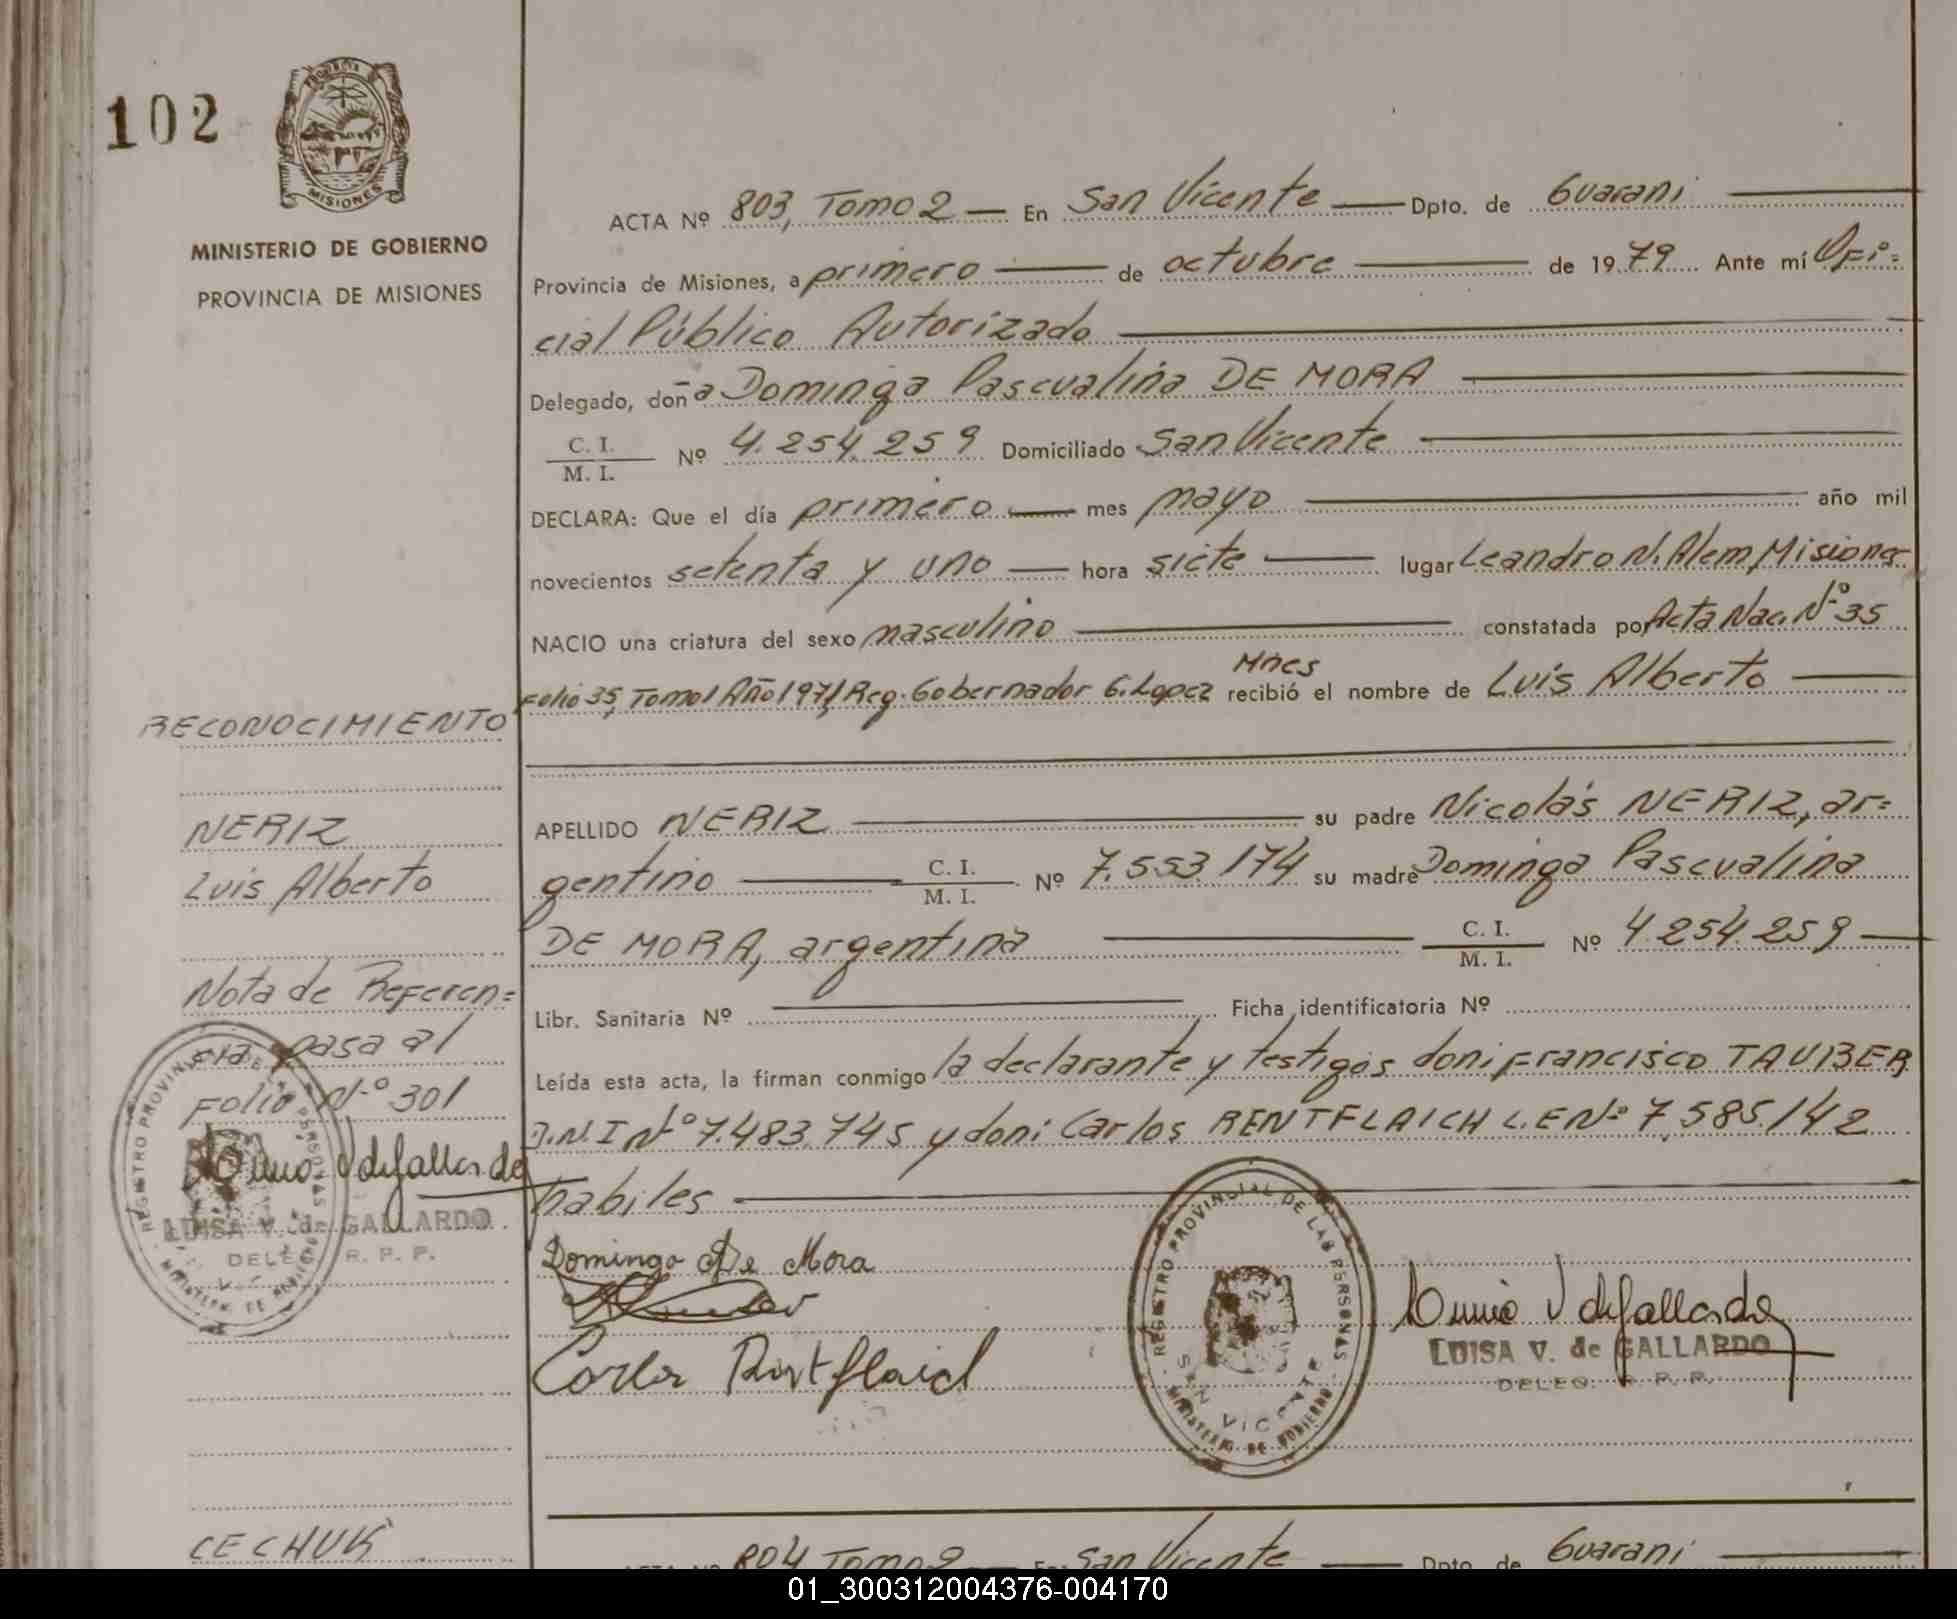 102
PROVINCIA DE
MISIONES
MINISTERIO DE GOBIERNO
PROVINCIA DE MISIONES
ACTA Nº 803, Tomo 2 — En San Vicente — Dpto. de Guarani —
Provincia de Misiones, a primero — de octubre — de 1979 Ante mí Ofi=
cial Público Autorizado —
Delegado, doña Dominga Pascualina DE MORA —
C. I.
M. I.
Nº 4.254.259 Domiciliado San Vicente —
DECLARA: Que el día primero — mes mayo — año mil
novecientos setenta y uno — hora siete — lugar Leandro N. Alem, Misiones
NACIO una criatura del sexo masculino — constatada por Acta Nac. Nº 35
Folio 35, Tomo 1 Año 1971, Reg. Gobernador G. Lopez Mnes recibió el nombre de Luis Alberto —
APELLIDO NERIZ — su padre Nicolás NERIZ, ar=
gentino — C. I. / M. I. Nº 7.553.174 su madre Dominga Pascualina
DE MORA, argentina — C. I. / M. I. Nº 4.254.259 —
Libr. Sanitaria Nº — Ficha identificatoria Nº
Leída esta acta, la firman conmigo la declarante y testigos don: Francisco TAUBER
D.N.I Nº 7.483.745 y don: Carlos RENTFLAICH L.E Nº 7.585.142
habiles —
Domingo De Mora
Carlos Rentflaich
REGISTRO PROVINCIAL DE LAS PERSONAS
SAN VICENTE
MINISTERIO DE GOBIERNO
LUISA V. de GALLARDO
DELEG. R. P. P.
RECONOCIMIENTO
NERIZ
Luis Alberto
Nota de Referen=
cia pasa al
Folio Nº 301
REGISTRO PROVINCIAL DE LAS PERSONAS
MINISTERIO DE GOBIERNO
LUISA V. de GALLARDO.
DELEG. R. P. P.
CECHUK
ACTA Nº 804 Tomo 2 — En San Vicente — Dpto. de Guarani —
01_300312004376-004170